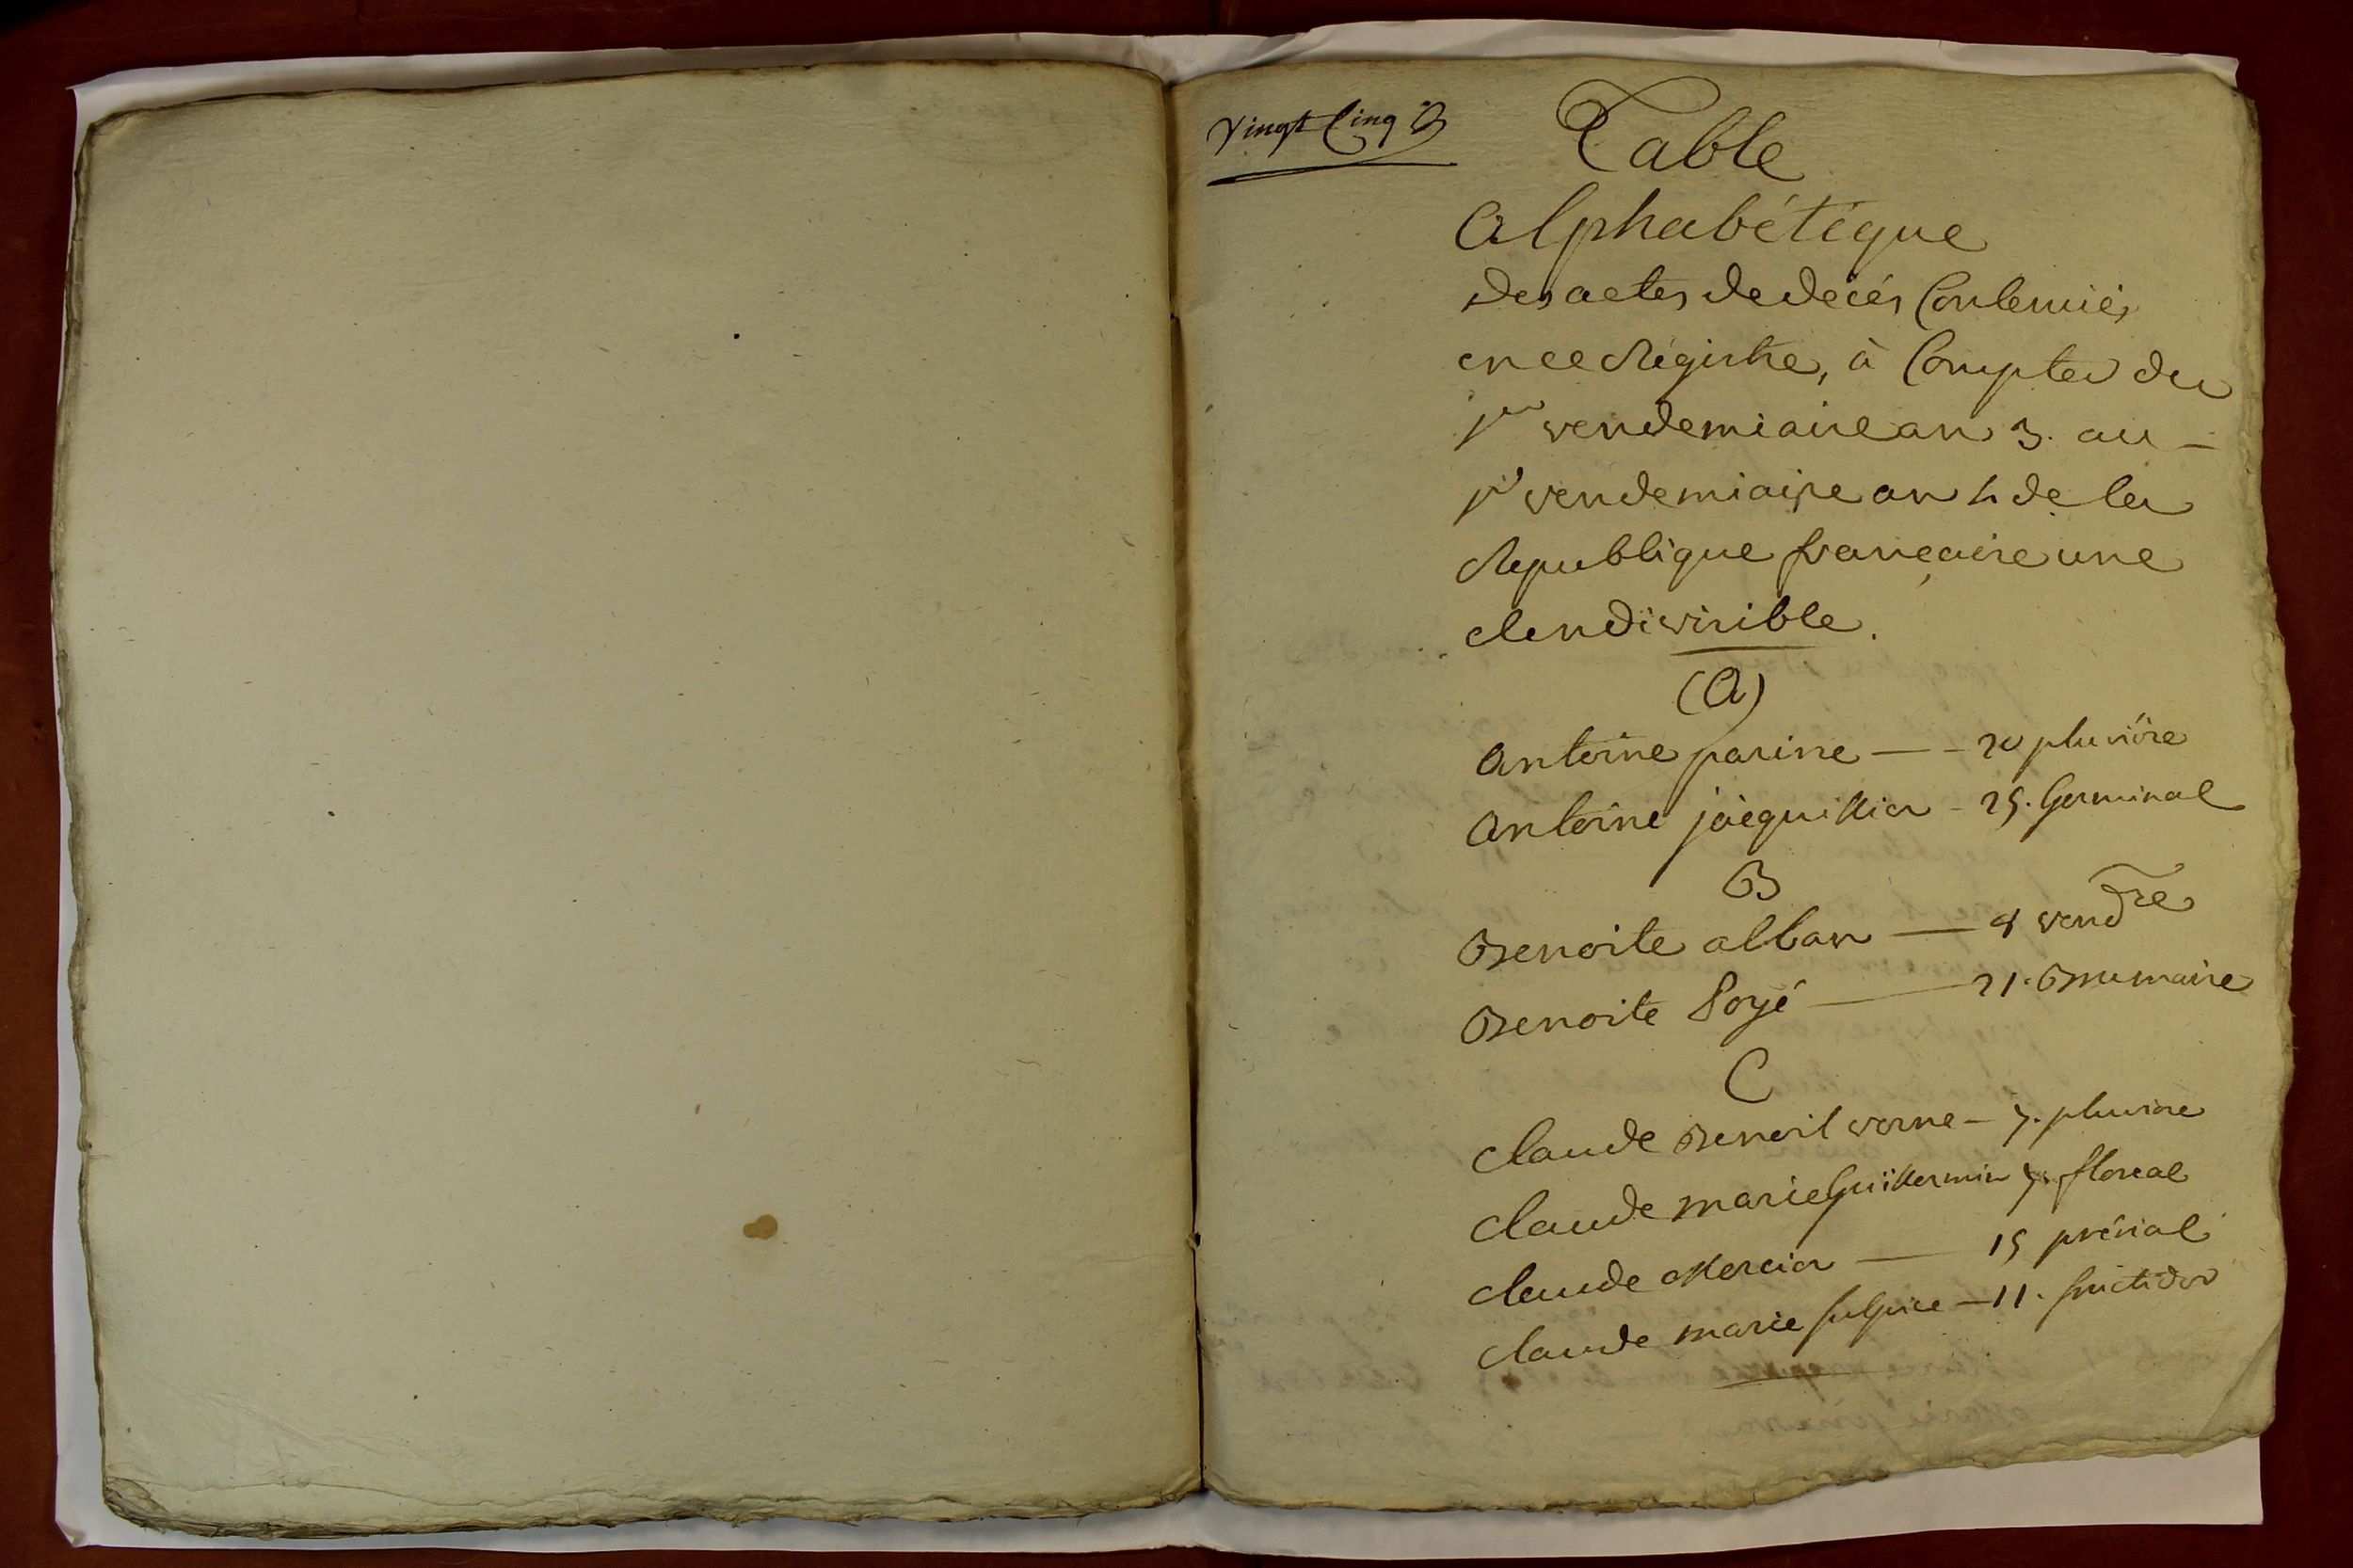 Vingt Cinq
Table
Alphabétique
des actes de décés Contenües
en ce Régistre, à Compter du
1er vendemiaire an 3. au -
1er vendemiaire an 4 de la
Republique française une
et indivisible.
(A)
Antoine parine — - 20 pluviôse
Antoine jàequillier - 25. Germinal
B
Benoite alban — 4 vendre
Benoite Poyé — 21. Brumaire
C
Claude Benoit verne - 7. pluviose
Claude marie Guïllermin 7. floreal
Claude Mercier — 15 prérial
Claude marie sulpice — 11. fructidor